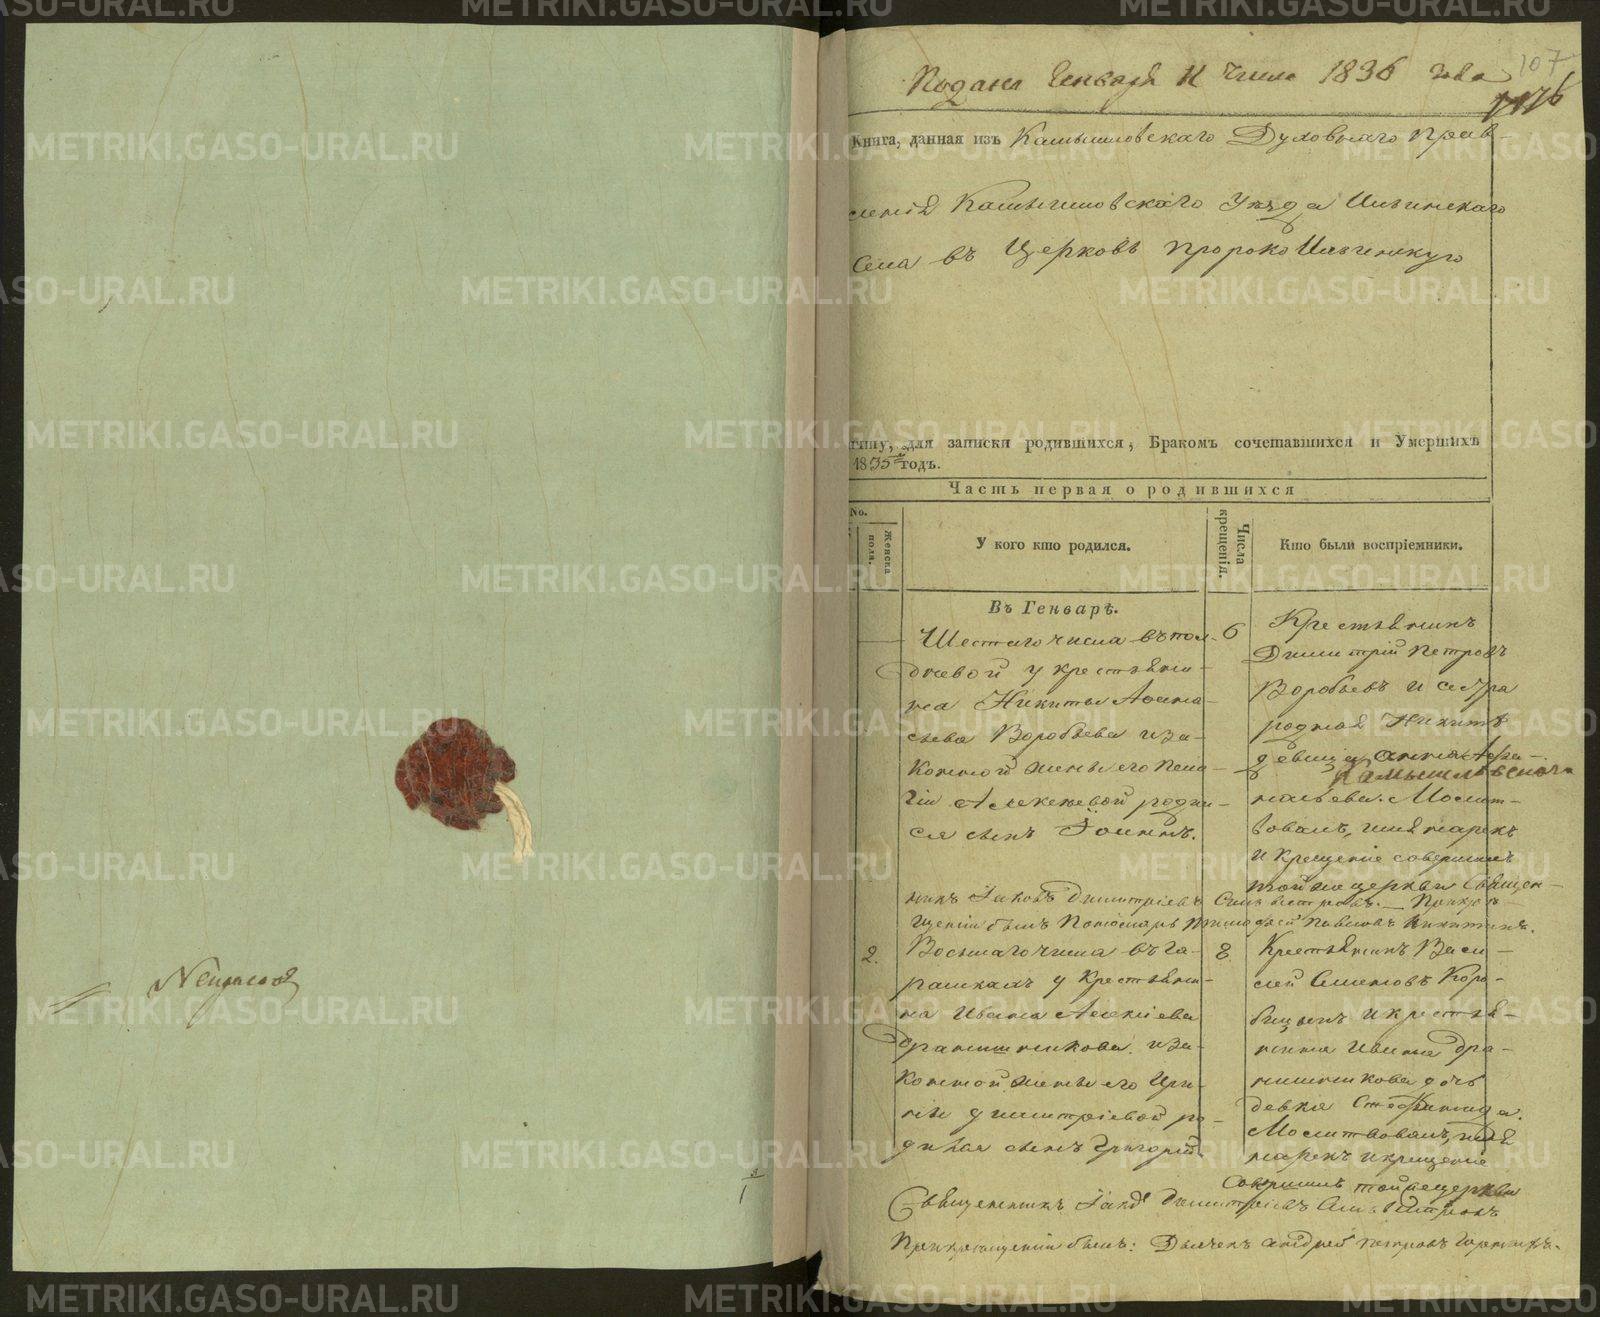 Подана Генваря 11 числа 1836 года
107
Книга, данная изъ Камышловскаго Духовнаго Прав-
ленія Камышловскаго Уѣзда Ильинскаго
Села въ Церковь Пророко Ильинскую
гину, для записки родившихся, Бракомъ сочетавшихся и Умершихъ
1835 годъ.
Часть первая о родившихся
No.
Женска пола.
У кого кто родился.
Числа крещенія.
Кто были воспріемники.
Въ Генварѣ.
Шестаго числа въ пол-
дневой у крестьяни-
на Никиты Афана-
сьева Воробьева и за-
конной жены его Пела-
гіи Алексѣевой родил-
ся сынъ Іоаннъ.
6
Крестьянинъ
Димитрій Петровъ
Воробьевъ и сестра
родная Никиты
девица Анна Афа-
Камышловскаго
насьева. Молит-
вовалъ, имя нарекъ
и крещеніе совершилъ
той же церкви Священ-
никъ Іаковъ Димитріевъ Сильвестровъ. При кре-
щеніи былъ Пономарь Павловъ Никитинъ.
2.
Восьмаго числа въ Га-
рашкахъ у крестьяни-
на Ивана Алексіева
Дранишникова и за-
конной жены его Ири-
ны Димитріевой ро-
дился сынъ Григорій
8
Крестьянинъ Васи-
лей Семеновъ Коро-
бицынъ и крестья-
нина Ивана Дра-
нишникова дочь
девка Стефанида.
Молитвовалъ, имя
нарекъ и крещеніе
Совершилъ той же церкви
Священникъ Іаковъ Димитріевъ Сильвестровъ
При крещеніи былъ: Дьячекъ Андрей Петровъ